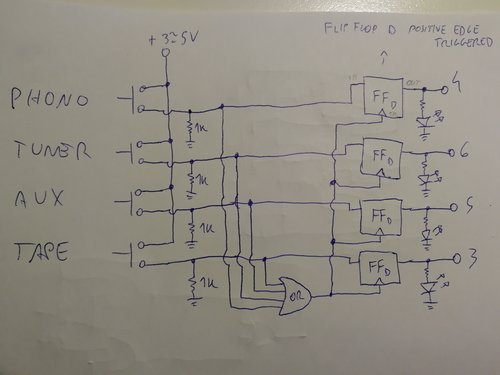 FLIP FLOP D POSITIVE EDGE
TRIGGERED
+ 3÷5V
PHONO
1K
IN
FF D
OUT
4
TUNER
1K
FF D
6
AUX
1K
FF D
5
TAPE
1K
OR
FF D
3